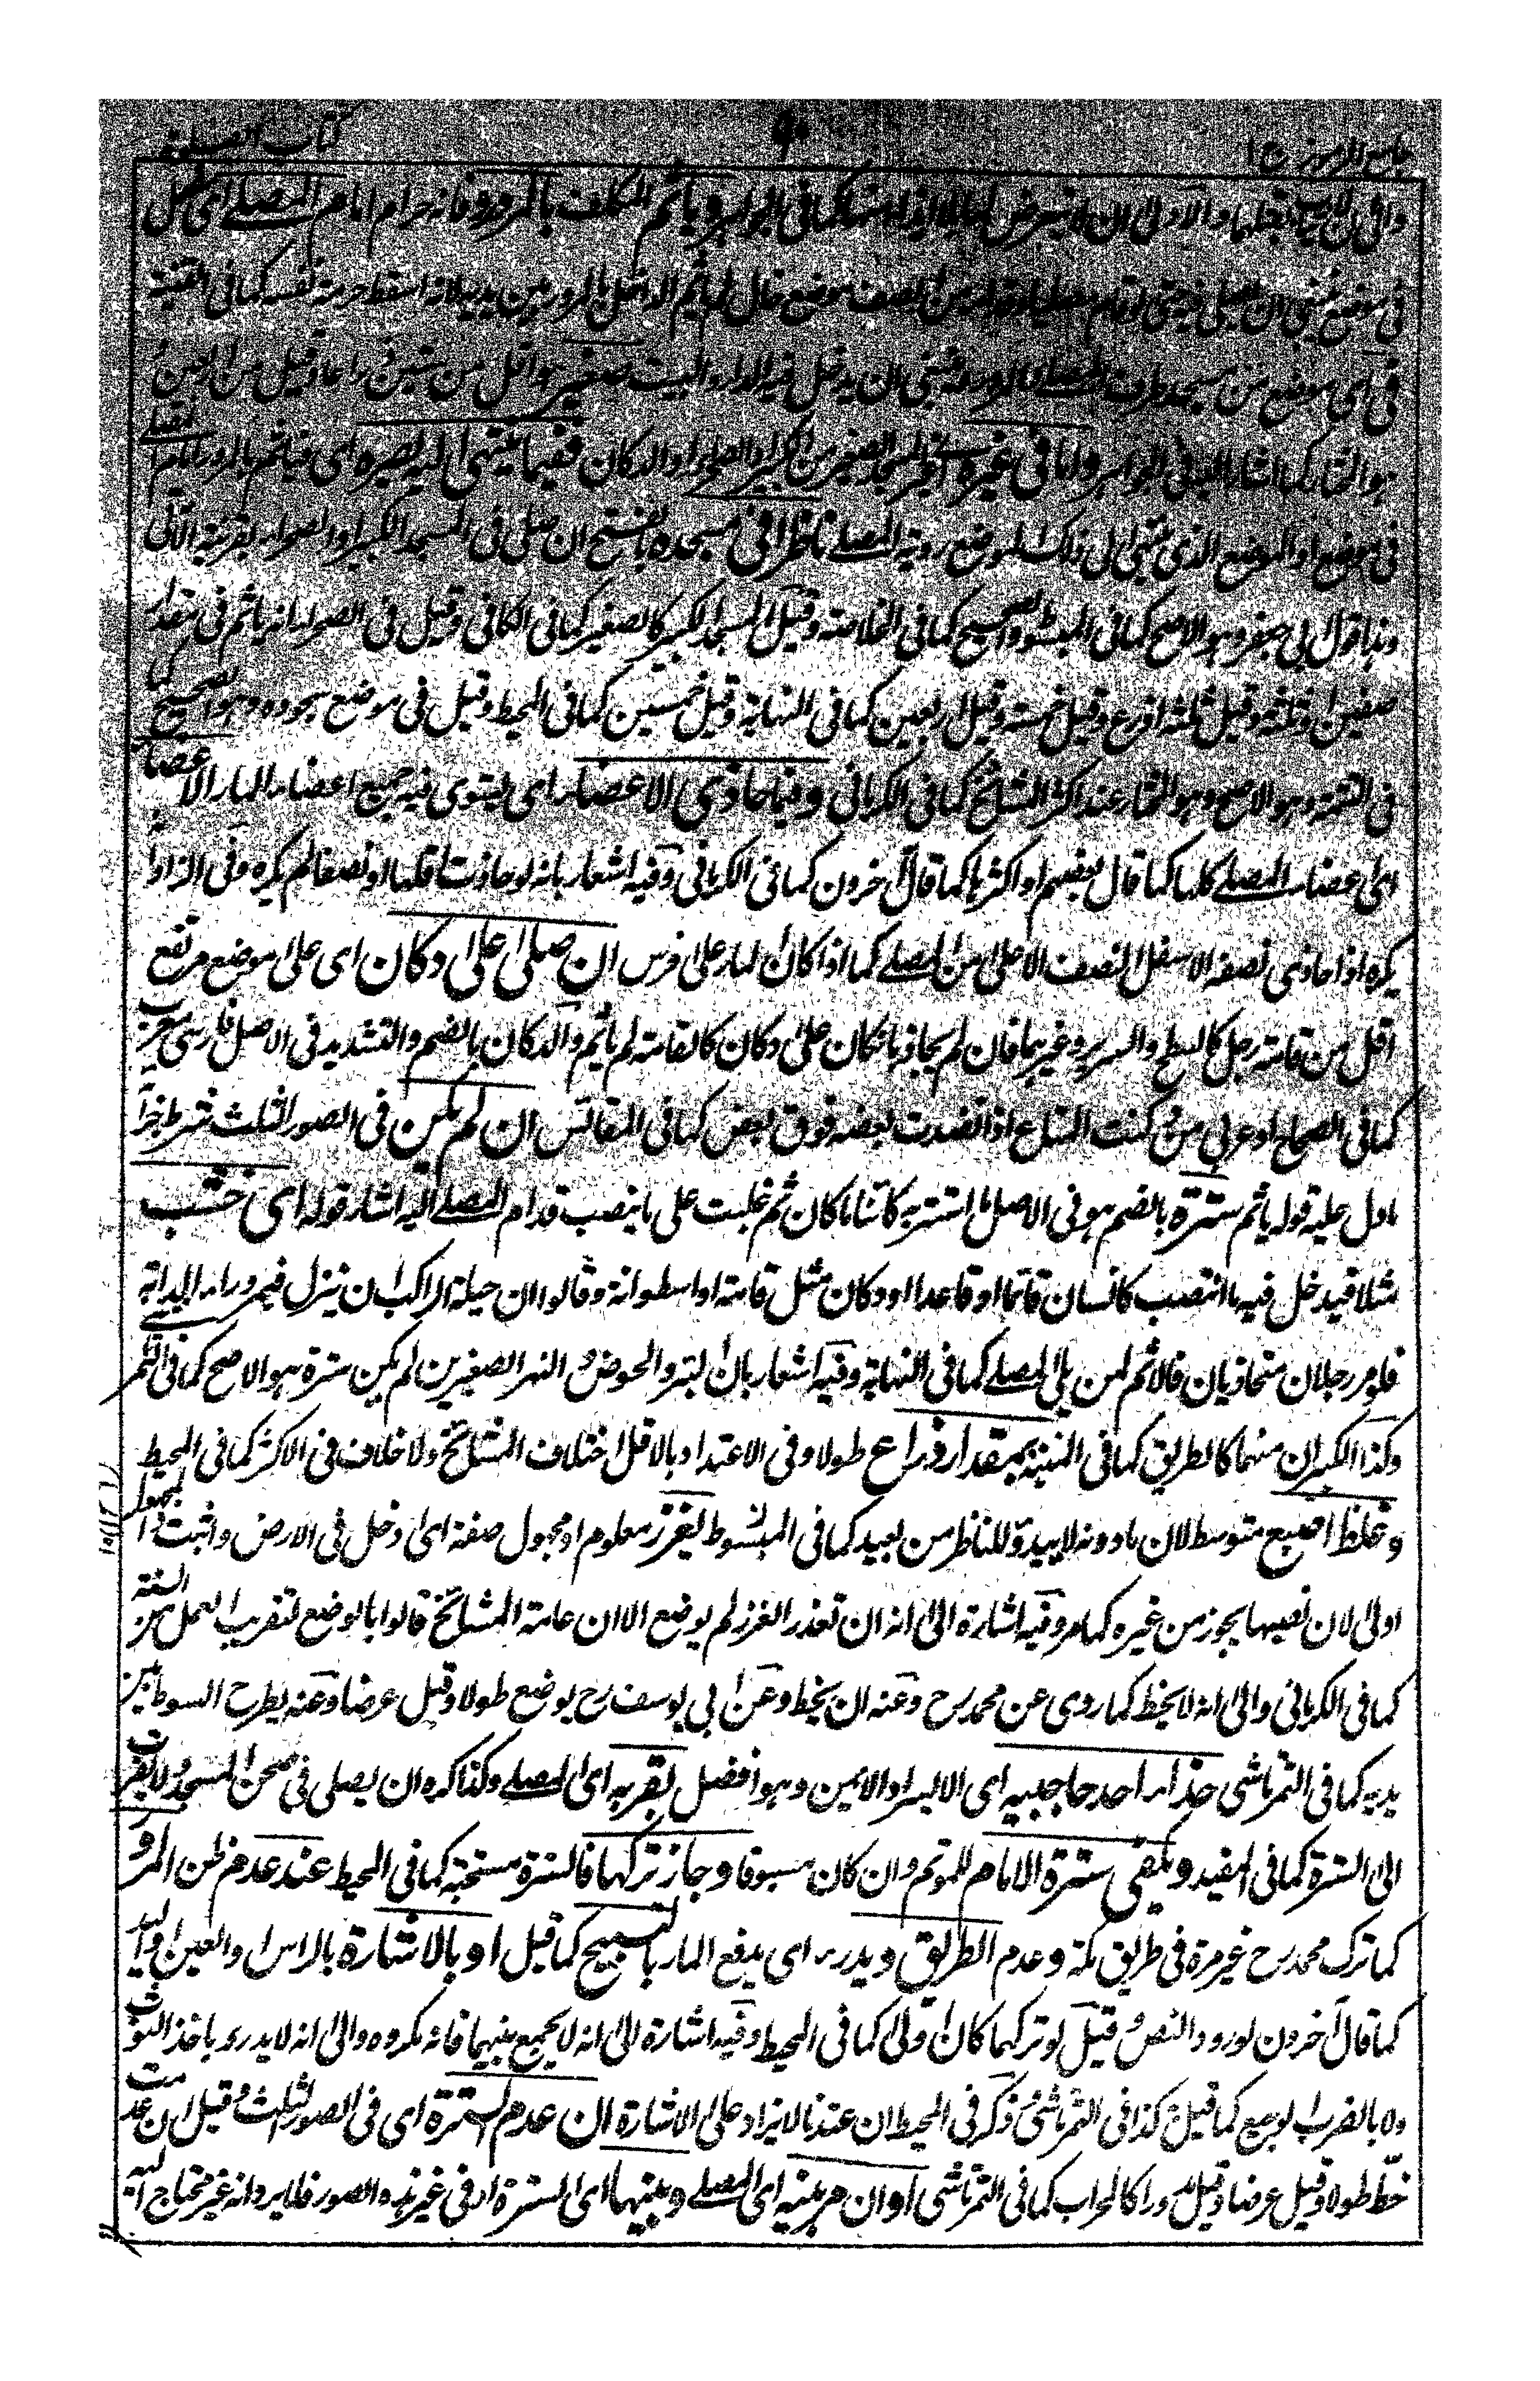 جامع الرموز ج ١ ٩٠ كتاب الصلوة
والى ان لا يباح قتلها والاولى ان لا يتعرض لها كما فى الجواهر وياثم المكلف بالمرور فانه حرام امام المصلے اى
فى موضع ينبغى ان يصلى فيه حتى لو قام من الصف موضع خال لم ياثم الداخل بالمرور بين يديه لانه اسقط حرمة نفسه كما فى القنية
فى اى موضع من مسجد فينبغى ان يدخل فيه الدار والبيت صغير هو اقل من ستين ذراعا وقيل من اربعين
هو المختار كما اشار اليه فى الجواهر واما فى غيره اى غير المسجد الصغير من الكبير والصحراء والدكان ففيما ينتهى اليه بصره اى فياثم بالمرور امام المصلے
فى موضع او الموضع الذى ينتهى الى ذلك الموضع روية المصلے ناظرا فى مسجده بالفتح ان صلى فى المسجد الكبير او الصحراء بقرينة الآتى
وهذا قول ابى جعفر وهو الاصح كما فى المبسوط والصحيح كما فى الخلاصة وقيل المسجد الكبير كالصغير كما فى الكافى وقيل فى الصحراء انه ياثم فى مقدار
صفين او ثلثة وقيل ثلثة اذرع وقيل خمسة وقيل اربعين كما فى النهاية وقيل خمسين كما فى المحيط وقيل فى موضع سجوده وهو الصحيح كما
فى التتمة وهو الاصح وهو المختار عند اكثر المشائخ كما فى الكرمانى وفيما حاذى الاعضاء اى يستوى فيه جميع اعضاء المار الاعضاء
اى اعضاء المصلے كلها كما قال بعضهم او اكثرها كما قال آخرون كما فى الكرمانى وفيه اشعار بانه لو حاذت اقلها او نصفها لم يكره وفى الزاد انه
يكره اذا حاذى نصفه الاسفل النصف الاعلى من المصلے كما اذا كان المار على فرس ان صلى على دكان اى على موضع مرتفع
اقل من قامة رجل كالسطح والسرير وغيرهما فان لم يحاذ بان كان على دكان كالقامة لم ياثم والدكان بالضم والتشديد فى الاصل فارسى معرب
كما فى الصحاح او عربى من دكنت المتاع اذا نضدت بعضه فوق بعض كما فى المقائس ان لم يكن فى الصور الثلث شرط جزاء
ما دل عليه قوله ياثم سترة بالضم هو فى الاصل ما استتر به كائنا ما كان ثم غلبت على ما ينصب قدام المصلے اليه اشار قوله اى خشب
مثلا فيدخل فيه ما انتصب كانسان قائما او قاعدا او دكان مثل قامة او اسطوانة وقالوا ان حيلة الراكب ان ينزل فيمر وراء الدابة
فلو مر رجلان متحاذيان فالاثم لمن يلى المصلے كما فى النهاية وفيه اشعار بان البئر والحوض والنهر الصغيرين لم يكن سترة هو الاصح كما فى
وكذا الكبيران منهما كالطريق كما فى المنية بمقدار ذراع طولا وفى الاعتداد بالاقل اختلاف المشائخ ولا خلاف فى الاكثر كما فى المحيط
وغلظ اصبع متوسط لان ما دونه لا يبدو للناظر من بعيد كما فى المبسوط يغرز معلوم او مجهول صفة اى دخل فى الارض واثبت
اولى لان نصبها يجوز من غيره كما مر وفيه اشارة الى انه ان تعذر الغرز لم يوضع الا ان عامة المشائخ قالوا بالوضع لتقريب العمل من السنة
كما فى الكرمانى والى انه لا يخط كما روى عن محمد رح وعنه ان يخط وعن ابى يوسف رح يوضع طولا وقيل عرضا وعنه يطرح السوط بين
يديه كما فى التمرتاشى حذاء احد حاجبيه اى الايسر او الايمن وهو افضل بقربه اى المصلے وكذا كره ان يصلى فى صحن المسجد ولا يقرب
الى السترة كما فى المفيد ويكفى سترة الامام للموتم وان كان مسبوقا وجاز تركها فالسترة مستحبة كما فى المحيط عند عدم ظن المرور
كما ترك محمد رح غير مرة فى طريق مكة وعدم الطريق ويدرء اى يدفع المار بالتسبيح كما قيل او بالاشارة بالراس او العين او اليد
كما قال آخرون لورود النص وقيل لو تركهما كان اولى كما فى المحيط وفيه اشارة الى انه لا يجمع بينهما فانه مكروه والى انه لا يدرء باخذ الثوب
ولا بالضرب الوجيع كما قيل كذا فى التمرتاشى وذكر فى المحيط ان عندنا لا يزاد على الاشارة ان عدم السترة اى فى الصور الثلث وقيل ان عدمت
خط طولا وقيل عرضا وقيل مدورا كالمحراب كما فى التمرتاشى او ان مر بينه اى المصلے وبينها اى السترة او فى غير هذه الصور فظاهر انه غير محتاج اليه